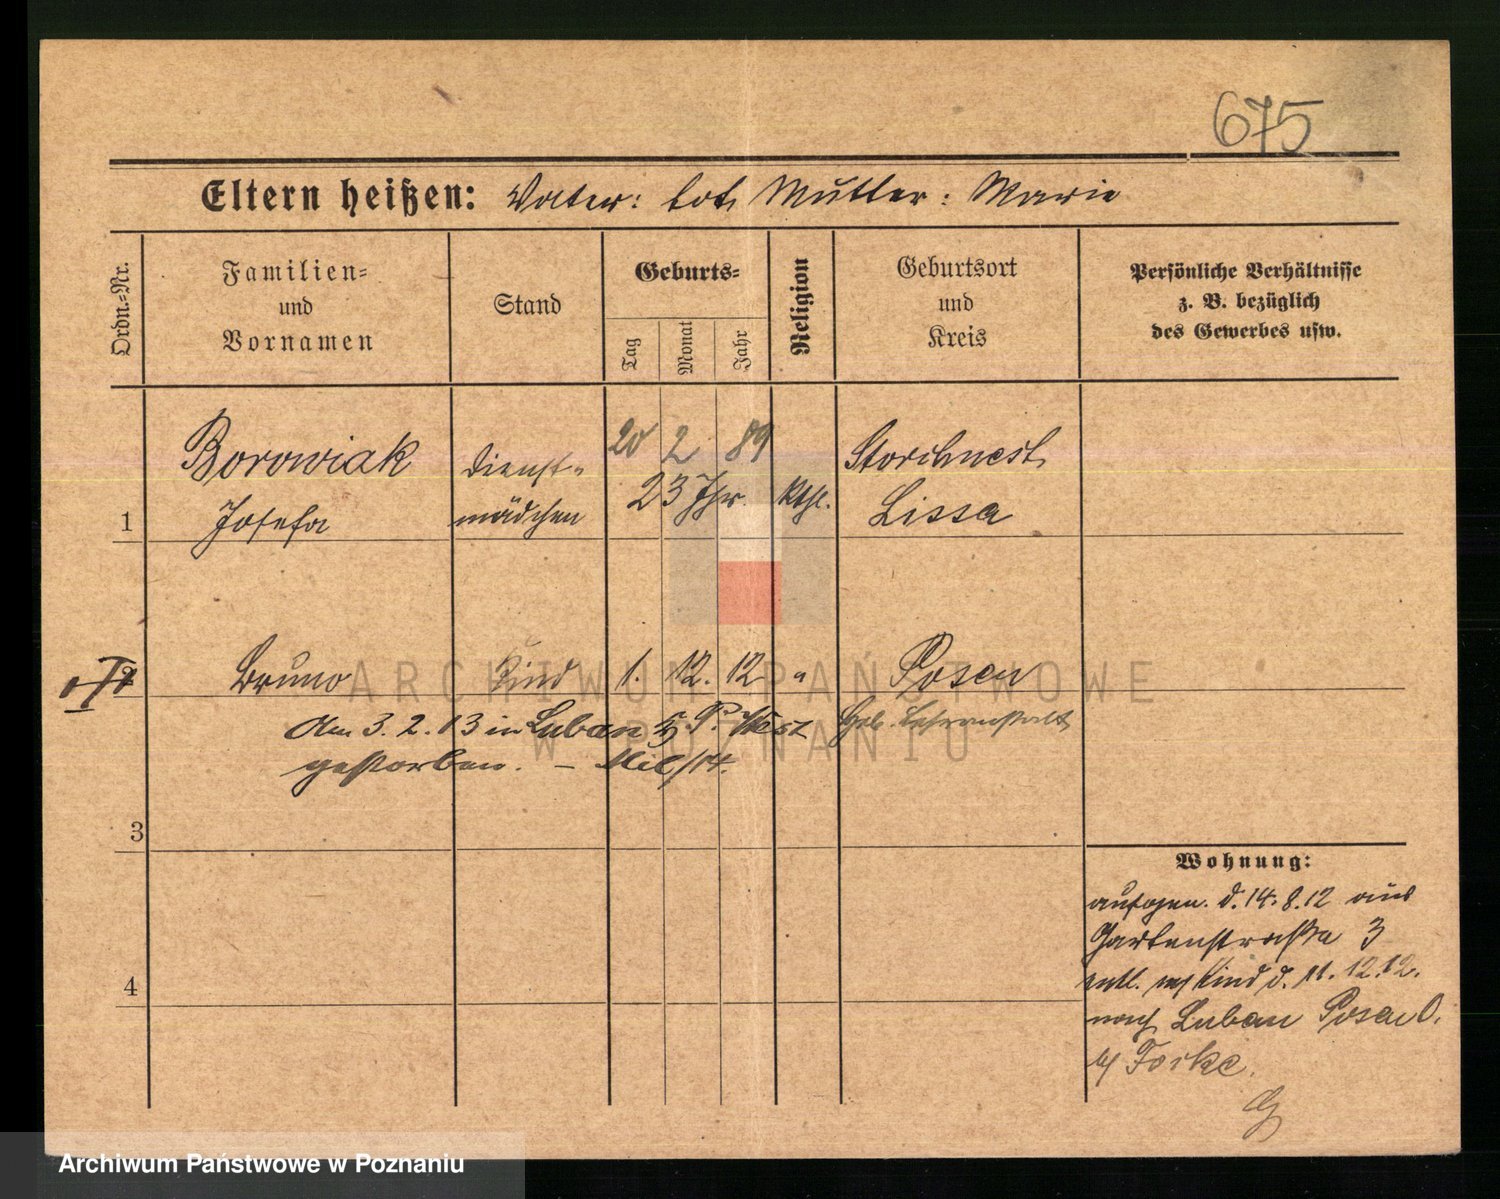 675
Eltern heißen: Vater: tot, Mutter: Marie
Ordn.-Nr.
Familien-
und
Vornamen
Stand
Geburts-
Tag
Monat
Jahr
Religion
Geburtsort
und
Kreis
Persönliche Verhältnisse
z. B. bezüglich
des Gewerbes usw.
20 2 89
Borowiak Dienst- Storchnest
1 Josefa mädchen 23 Jhr. kthl. Lissa
2 Bruno Kind 1. 12. 12 " Posen
Am 3. 2. 13 in Luban P. West
gestorben. –
3
4
Wohnung:
aufgen. d. 14. 8. 12 aus
Gartenstraße 3
entl. m/ Kind d. 11. 12. 12.
nach Luban Posen O.
b/ Forke.
ARCHIWUM PAŃSTWOWE
W POZNANIU
Archiwum Państwowe w Poznaniu